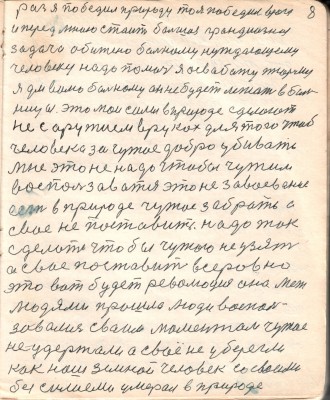 раз я победил природу то я победил врага
и передо мною стоит большая грандиозная
задача обижено больному нуждающему
человеку надо помоч я освабажу тюрьму
я дам вам больному он не будет лежать в боль-
ницы это мои силы в природе сделают
не с аружием в руках для того чтоб
человека за чужое добро убивать
мне это не надо чтобы чужим
воспользаватя это не завоевание
если в природе чужое забрать а
свое не поставить надо так
сделать чтобы чужого не взять
а свое поставить всеровно
это вот будет революция она меж
людями прошла люди воспол-
зовалися сваим моментом чужое
не удержали а своё не уберегли
как наш земной человек со своим
бессилием умерал в природе
8